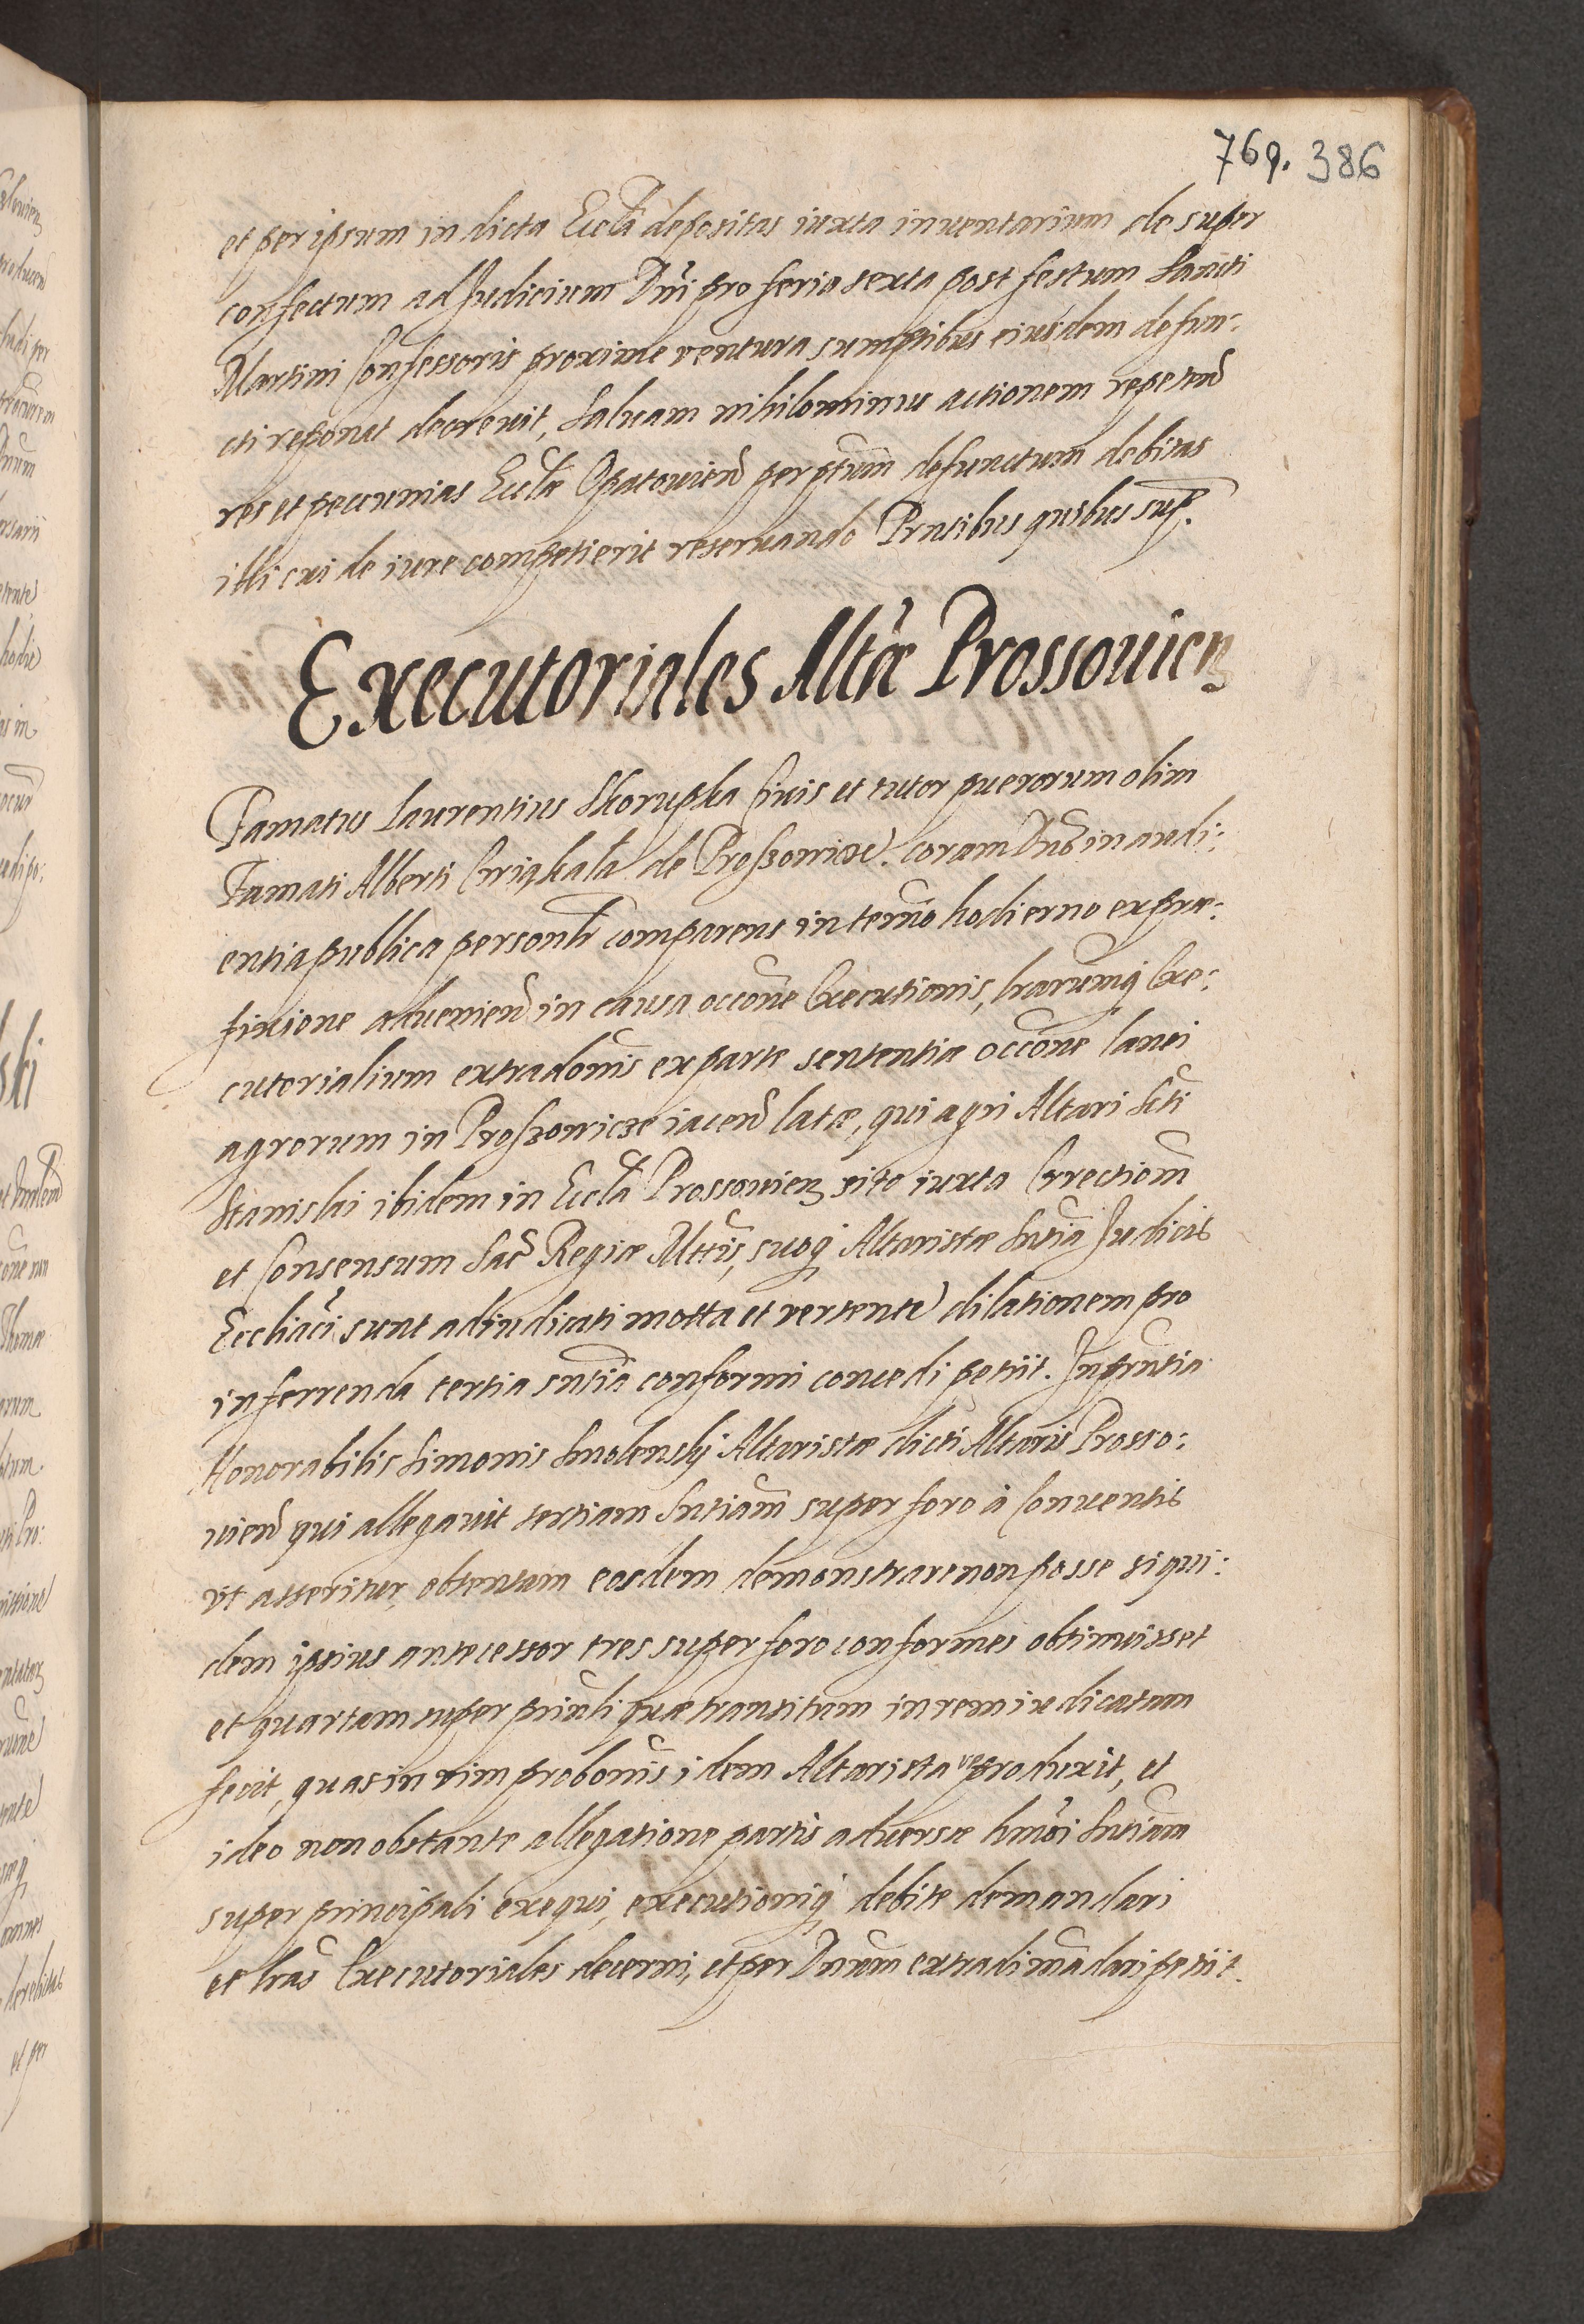 769. 386
et per ipsum in dicta Eccłã depositas iuxta inuentarium de super
confectum ad Judicium Dñi pro feria sexta post festum Sancti
Martini Confessoris proxime ventura sumptibus eiusdem defun:
cti reponat decreuit, Saluam nihilominus actionem repetend
res et pecunias Eccłæ Opatouien per ptum defunctum debitas
illi cui de iure competierit reseruando Pñtibus quibus sup.
Executoriales Altñæ Prossouien
Famatus Laurentius Skorupka Ciuis et tutor puerorum olim
Famati Alberti de Proszowicze. coram Dño in audi:
entia publica personłr comparens in termo hodierno ex præ:
fixione adueniend in causa occõne Executionis, lrarumq Exe:
cutorialium extradõnis ex parte sententiæ occõne lanei
agrorum in Proszowicze iacend latæ, qui agri Altari Scti
Stanislai ibidem in Eccłã Prossouien sito iuxta Errectiom
et Consensum Sac Regiæ Mttis, suoq Altaristæ Sntia Judicis
Eccliaci sunt adiudicati motta et vertente dilationem pro
inferrenda tertia sntia conformi concedi petiit. In pñtia
Honorabilis Simonis Smolensky Altaristæ dicti Altaris Prosso:
uien qui allegauit tertiam Sntiam super foro à Conuentis
vt asseritur, obtentam eosdem demonstrare non posse siqui:
dem ipsius antecessor tres super foro conformes obtinuisset
et quartam super prinłi quæ transitum in rem iudicatam
fecit, quas in vim probõnis idem Altarista reproduxit, et
ideo non obstante allegatione partis aduersæ hmoi Sntiam
super principali exequi, executioniq debite demandari
et lras Executoriales decerni, et per Dnum extradi mandari petiit.